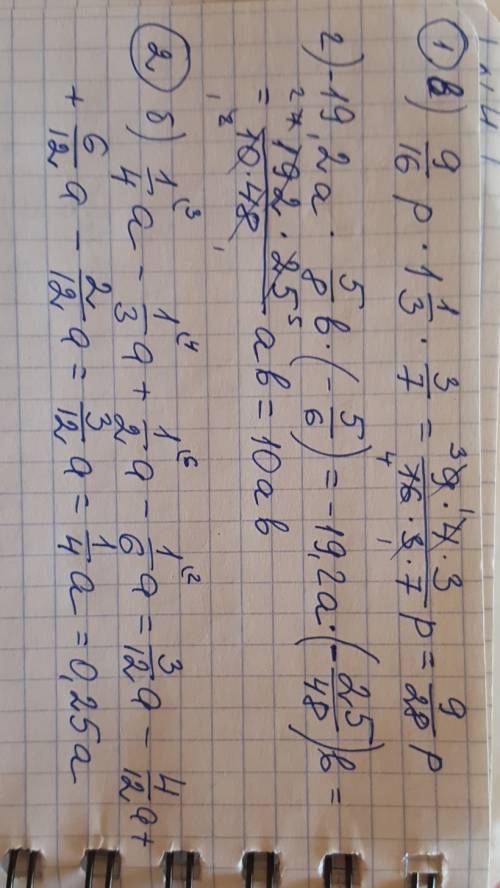 ① в) 9/16 p · 1 1/3 · 3/7 = 9·4·3/16·3·7 p = 9/28 p
г) -19,2a · 5/8 b · (-5/6) = -19,2a · (-25/48)b =
= 192·25/10·48 ab = 10ab
② б) 1/4 a - 1/3 a + 1/2 a - 1/6 a = 3/12 a - 4/12 a +
+ 6/12 a - 2/12 a = 3/12 a = 1/4 a = 0,25a